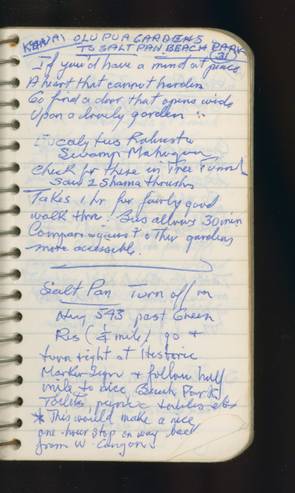 KAUAI OLU PUA GARDENS
TO SALT PAN BEACH PARK
(3)
If you'd have a mind at peace
A heart that cannot harden
Go find a door that opens wide
Upon a lovely garden
Eucalyptus Robusta
Swamp Mahogany
Check for these in Tree Tunnel
Saw 2 Shama thrushes
Takes 1 hr for fairly good
walk thru. Bus allows 30 min
Compare against other gardens
more accessible.
Salt Pan Turn off on
Hwy 543 past Green
Res (1/4 mile) go +
turn right at Historic
Marker Sign + follow half
mile to nice Beach Park
Toilets, picnic tables etc
* This would make a nice
one-hour stop on way back
from W. Canyon